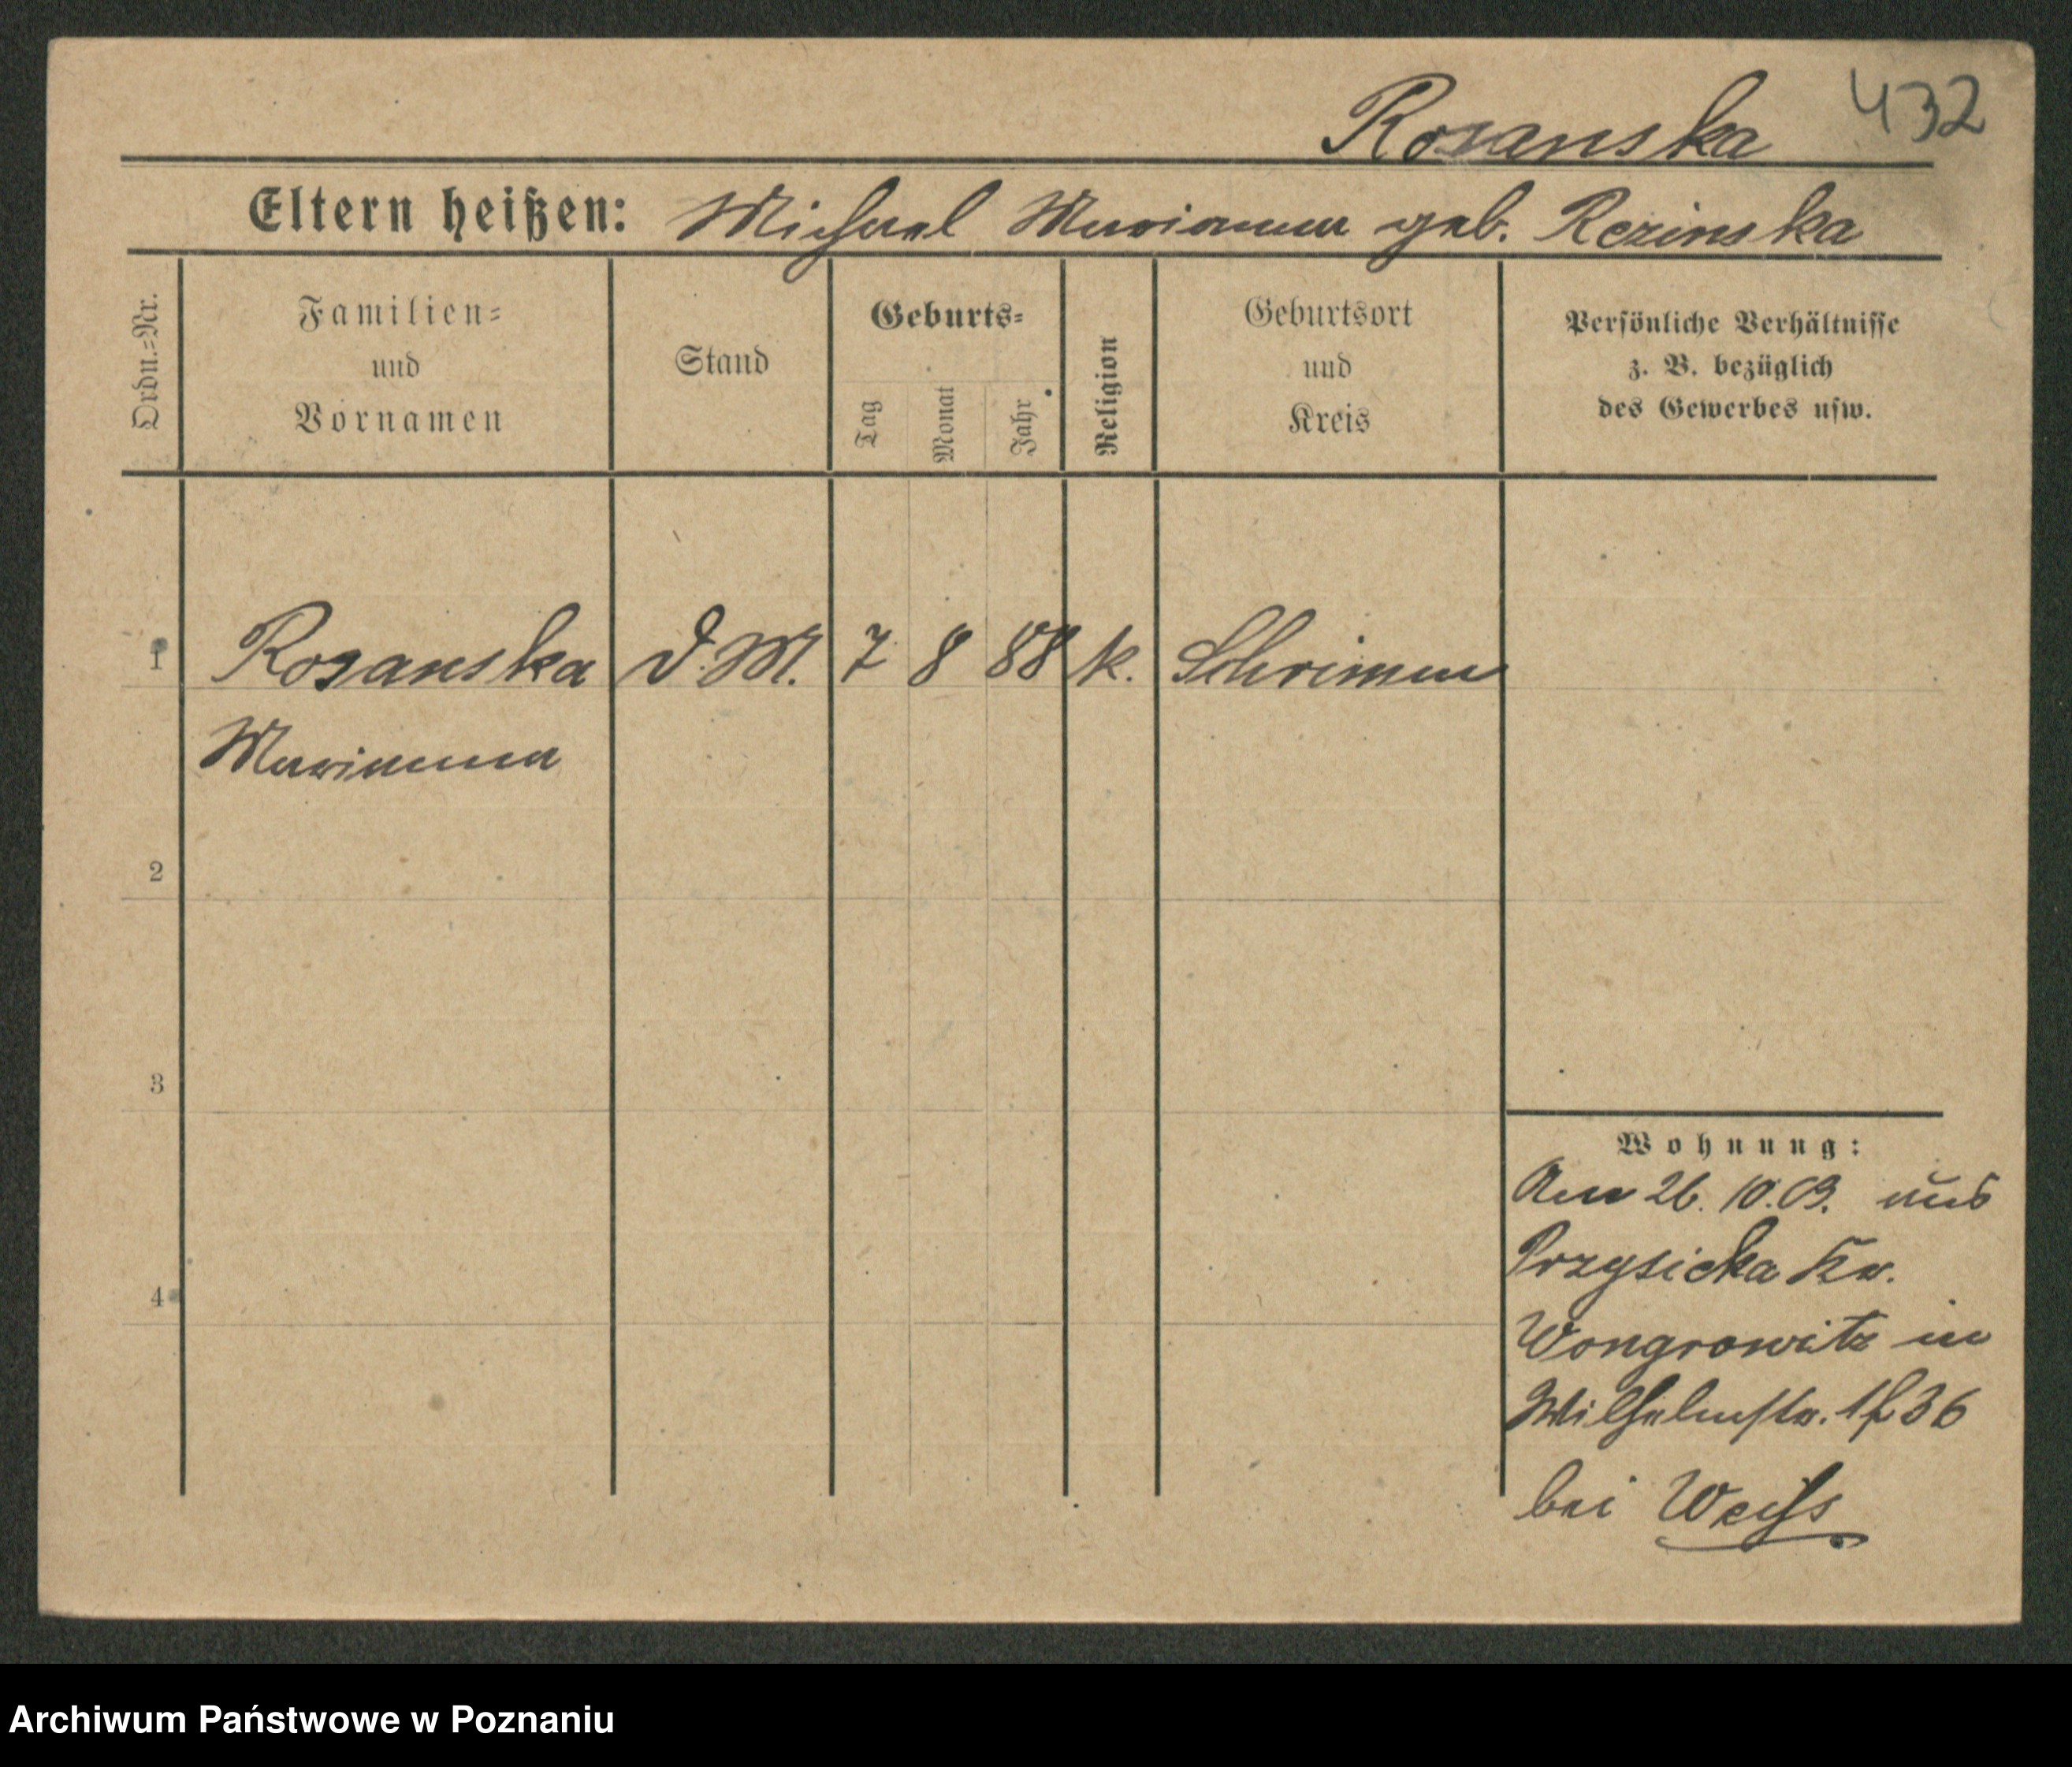 432
Rosanska
Eltern heißen: Michael Marianna geb. Rezinska
Ordn.=Nr.
Familien=
und
Vornamen
Stand
Geburts=
Tag
Monat
Jahr
Religion
Geburtsort
und
Kreis
Persönliche Verhältnisse
z. B. bezüglich
des Gewerbes usw.
1 Rosanska D. M. 7 8 88 k. Schrimm
Marianna
2
3
4
Wohnung:
Am 26. 10. 09. aus
Przysieka Kr.
Wongrowitz in
Wilhelmstr. 36
bei Weiss
Archiwum Państwowe w Poznaniu